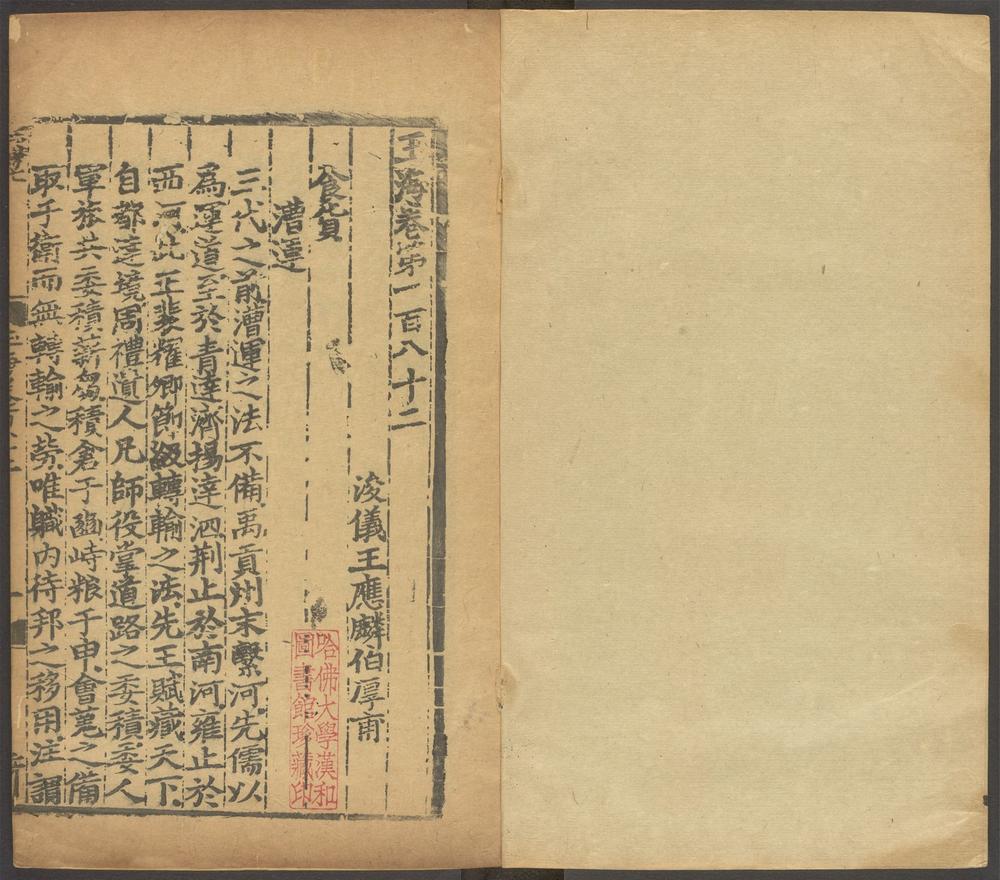 玉海卷第一百八十二
浚儀王應麟伯厚甫
食貨
漕運
三代之前漕運之法不備禹貢州末繫河先儒以
為運道至於青達濟揚達泗荆止於南河雍止於
西河此正裴耀卿節級轉輸之法先王賦藏天下
自都達境周禮遺人凡師役掌道路之委積委人
軍旅共委積薪芻積倉于豳峙粮于申會蒐之備
取于衛而無轉輸之勞唯職内待邦之移用注謂
哈佛大學漢和
圖書館珍藏印